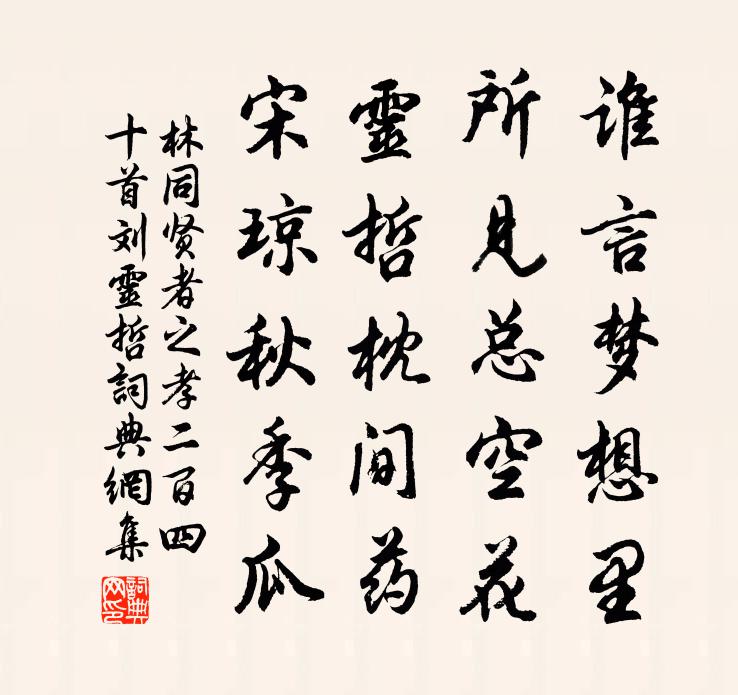 谁言梦想里
所见总空花
靈哲枕间药
宋琼秋季瓜
林同贤者之孝二百四
十首刘靈哲詞典網集
詞典
网印